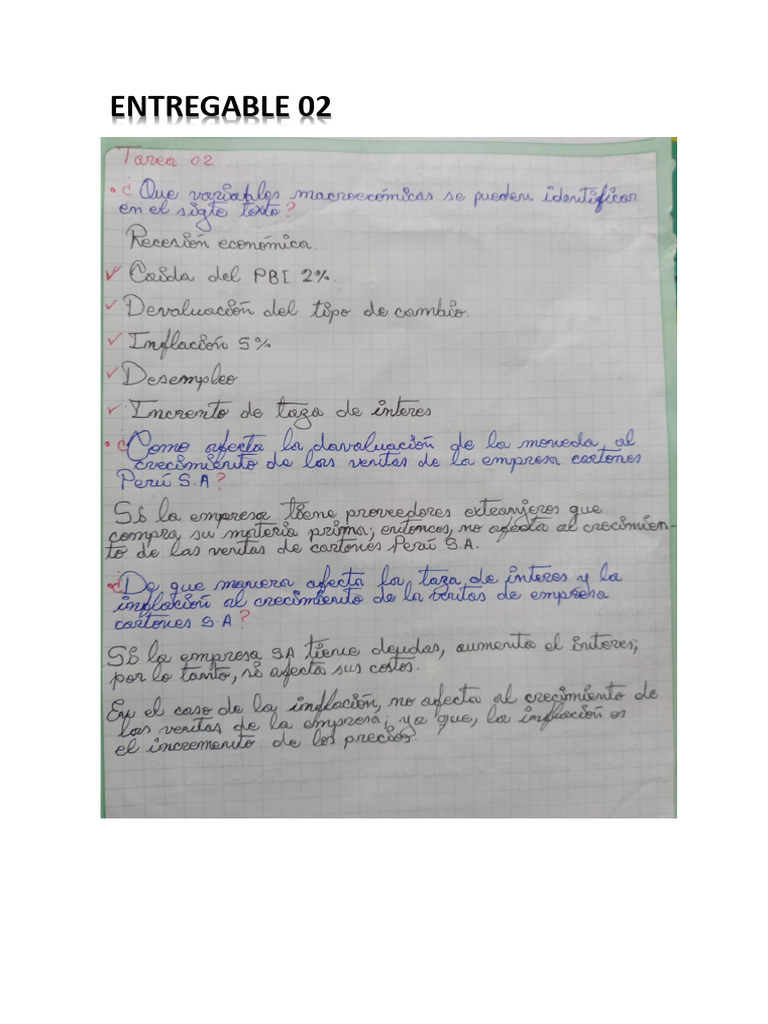 ENTREGABLE 02
Tarea 02
• ¿Que variables macroecómicas se pueden identificar
en el sigte texto?
Recesión económica.
✓ Caida del PBI 2%.
✓ Devaluación del tipo de cambio.
✓ Inflación 5%
✓ Desempleo
✓ Incremto de taza de interes
• ¿Como afecta la davaluación de la moneda, al
crecimiento de las ventas de la empresa cartones
Perú S.A?
Si la empresa tiene proveedores extranjeros que
compra su materia prima; entonces, no afecta al crecimien-
to de las ventas de cartones Perú S.A.
•¿De que manera afecta la taza de interes y la
inflación al crecimiento de la ventas de empresa
cartones S.A?
Si la empresa SA tiene deudas, aumenta el interes;
por lo tanto, si afecta sus costos.
En el caso de la inflación, no afecta al crecimiento de
las ventas de la empresa; ya que, la inflación es
el incremento de los precios.